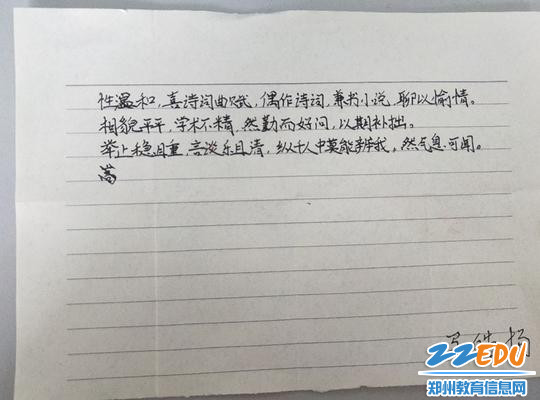 性温和,喜诗词曲赋,偶作诗词,兼书小说,聊以愉情。
相貌平平,学术不精,然勤而好问,以期补拙。
举止稳且重,言谈乐且清,纵千人中莫能辨我,然气息可闻。
扬
22EDU
郑州教育信息网